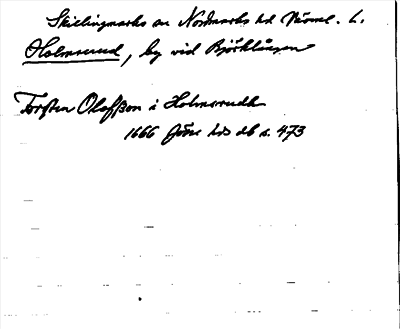 Skillingmarks sn Nordmarks hd Värml. l.
Holmsrud, by vid Björklången
Torsten Olafsson i Holmsrudh
1666 Jösse hds db s. 473